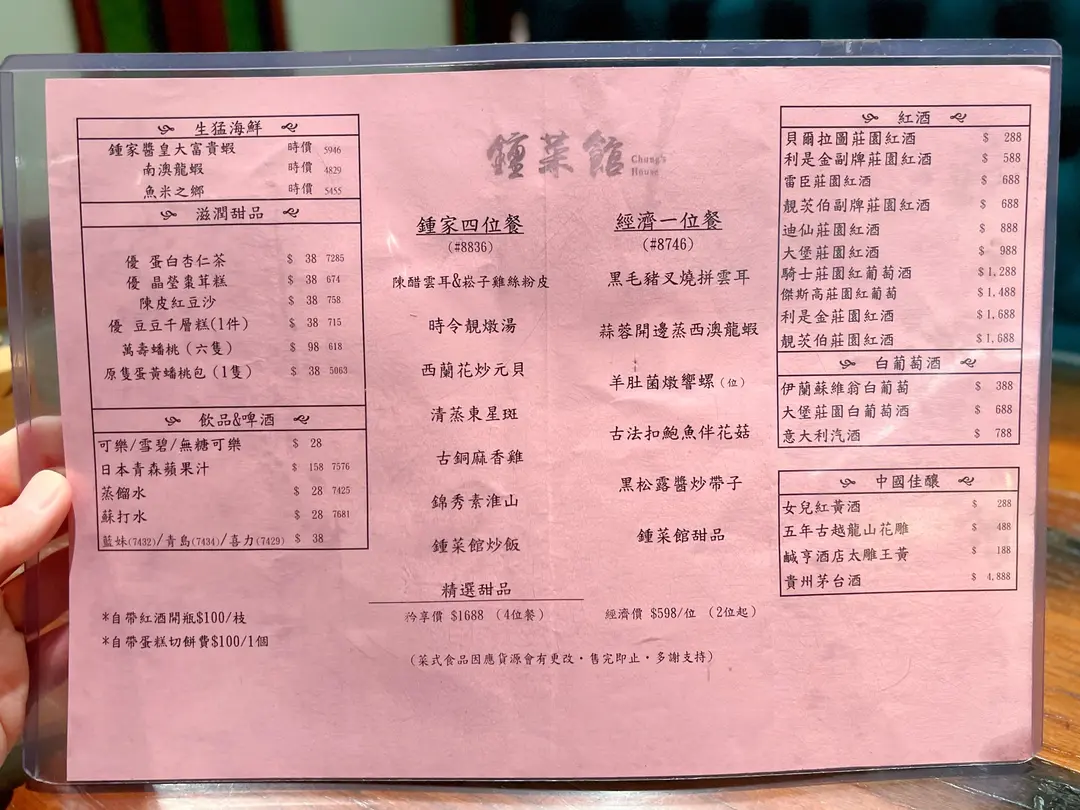 生猛海鮮
鍾家醬皇大富貴蝦 時價 5946
南澳龍蝦 時價 4829
魚米之鄉 時價 5455
滋潤甜品
優 蛋白杏仁茶 $ 38 7285
優 晶瑩棗茸糕 $ 38 674
陳皮紅豆沙 $ 38 758
優 豆豆千層糕(1件) $ 38 715
萬壽蟠桃(六隻) $ 98 618
原隻蛋黃蟠桃包(1隻) $ 38 5063
飲品&啤酒
可樂/雪碧/無糖可樂 $ 28
日本青森蘋果汁 $ 158 7576
蒸餾水 $ 28 7425
蘇打水 $ 28 7681
藍妹(7432)/青島(7434)/喜力(7429) $ 38
*自帶紅酒開瓶$100/枝
*自帶蛋糕切餅費$100/1個
鍾菜館 Chung's House
鍾家四位餐
(#8836)
陳醋雲耳&崧子雞絲粉皮
時令靚燉湯
西蘭花炒元貝
清蒸東星斑
古銅麻香雞
錦秀素淮山
鍾菜館炒飯
精選甜品
矜享價 $1688 (4位餐)
經濟一位餐
(#8746)
黑毛豬叉燒拼雲耳
蒜蓉開邊蒸西澳龍蝦
羊肚菌燉響螺(位)
古法扣鮑魚伴花菇
黑松露醬炒帶子
鍾菜館甜品
經濟價 $598/位 (2位起)
(菜式食品因應貨源會有更改・售完即止・多謝支持)
紅酒
貝爾拉圖莊園紅酒 $ 288
利是金副牌莊園紅酒 $ 588
雷臣莊園紅酒 $ 688
靚茨伯副牌莊園紅酒 $ 688
迪仙莊園紅酒 $ 888
大堡莊園紅酒 $ 988
騎士莊園紅葡萄酒 $1,288
傑斯高莊園紅葡萄 $1,488
利是金莊園紅酒 $1,688
靚茨伯莊園紅酒 $1,688
白葡萄酒
伊蘭蘇維翁白葡萄 $ 388
大堡莊園白葡萄酒 $ 688
意大利汽酒 $ 788
中國佳釀
女兒紅黃酒 $ 288
五年古越龍山花雕 $ 488
鹹亨酒店太雕王黃 $ 188
貴州茅台酒 $ 4,888